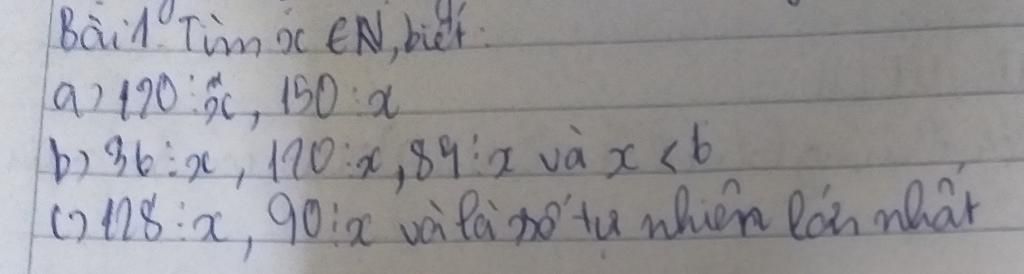 Bài 1: Tìm x ∈ N, biết:
a) 120 ⋮ x, 150 ⋮ x
b) 36 ⋮ x, 120 ⋮ x, 84 ⋮ x và x < 6
c) 128 ⋮ x, 90 ⋮ x và là số tự nhiên lớn nhất